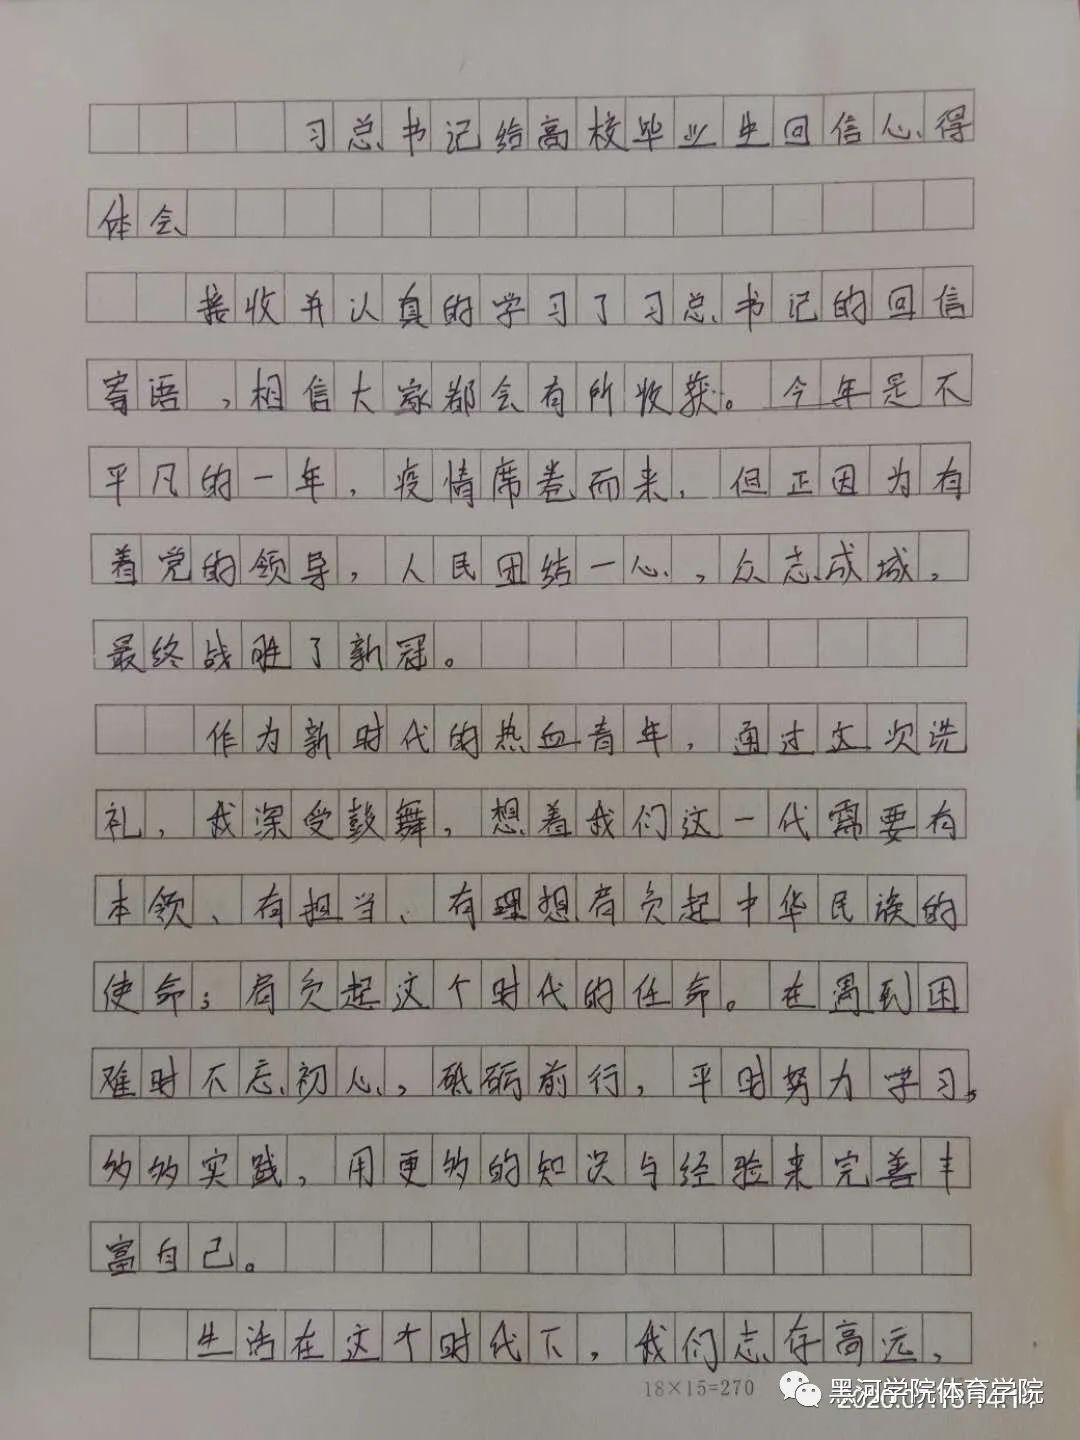 习总书记给高校毕业生回信心得
体会
接收并认真的学习了习总书记的回信
寄语,相信大家都会有所收获。今年是不
平凡的一年,疫情席卷而来,但正因为有
着党的领导,人民团结一心,众志成城,
最终战胜了新冠。
作为新时代的热血青年,通过这次洗
礼,我深受鼓舞,想着我们这一代需要有
本领、有担当、有理想肩负起中华民族的
使命;肩负起这个时代的任命。在遇到困
难时不忘初心,砥砺前行,平时努力学习,
多多实践,用更多的知识与经验来完善丰
富自己。
生活在这个时代下,我们志存高远,
18×15=270
黑河学院体育学院